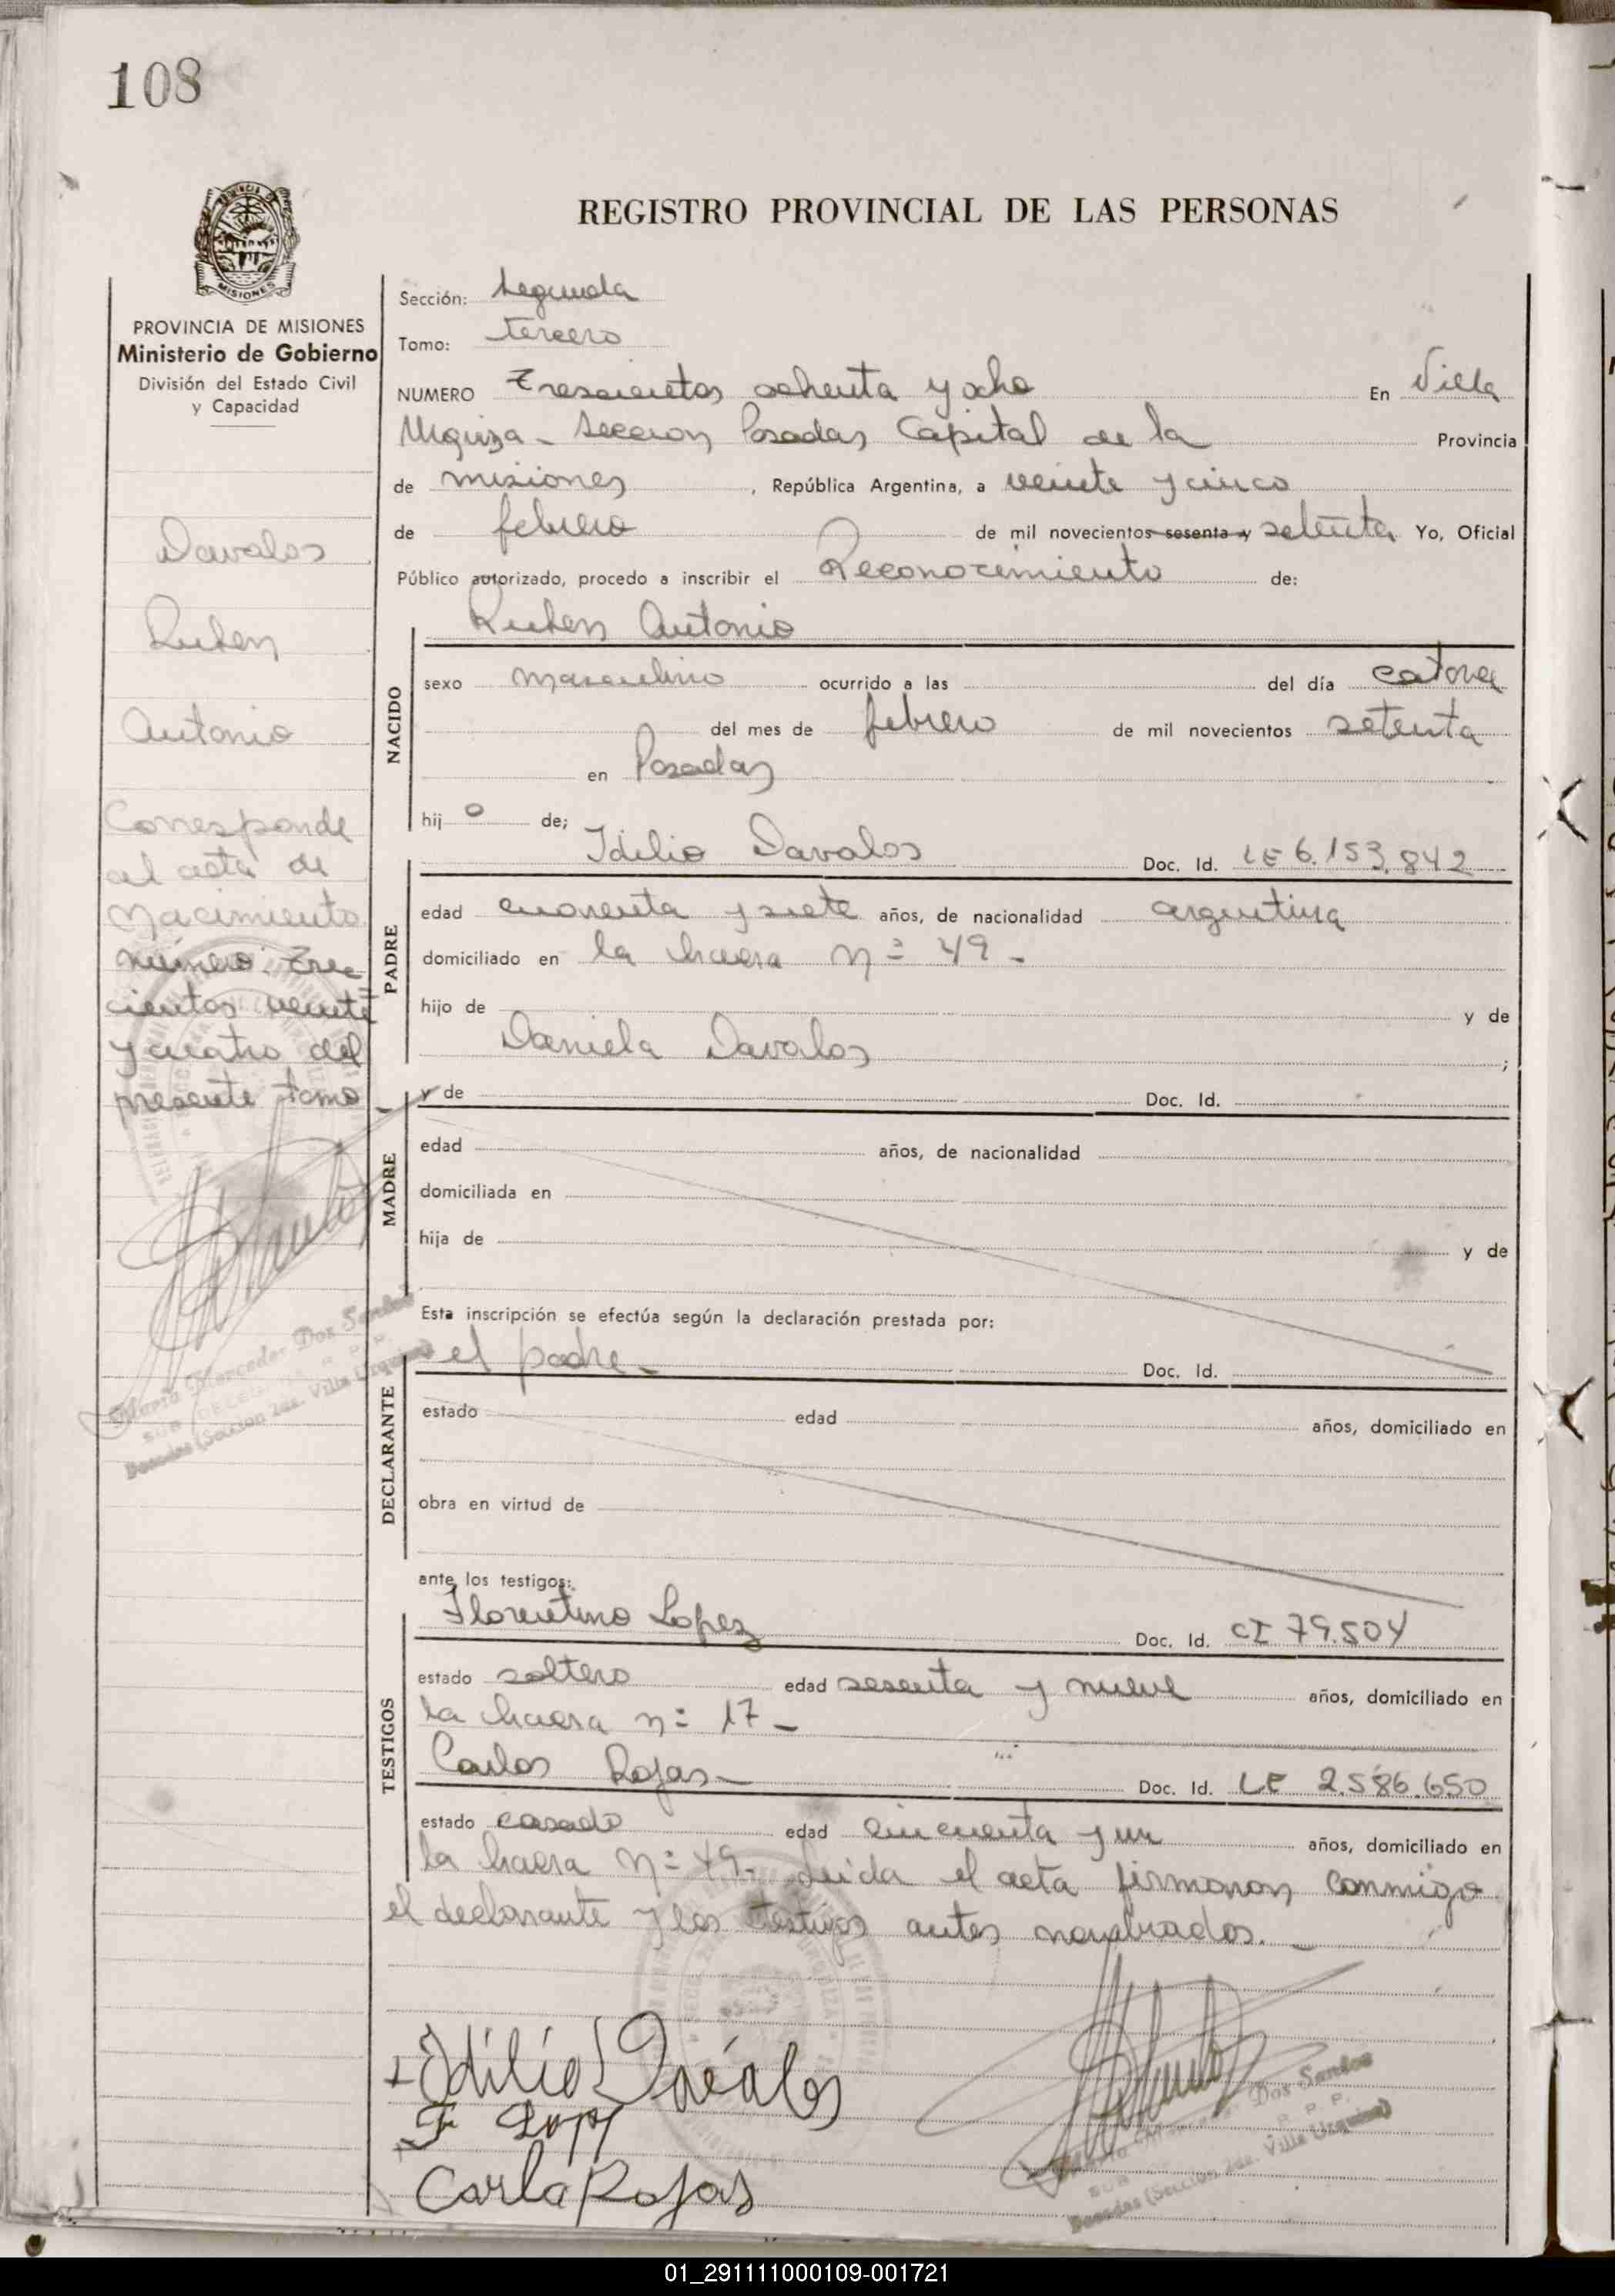 108
REGISTRO PROVINCIAL DE LAS PERSONAS
MISIONES
PROVINCIA DE MISIONES
Ministerio de Gobierno
División del Estado Civil
y Capacidad
Davalos
Ruben
Antonio
Corresponde
al acta de
Nacimiento
número: Tres
cientos veinte
y cuatro del
presente tomo
Maria Mercedes Dos Santos
SUB DELEGADA R. P. P.
Posadas (Seccion 2da. Villa Urquiza)
Sección: Segunda
Tomo: tercero
NUMERO Trescientos ochenta y ocho En Villa
Urquiza - Seccion Posadas Capital de la Provincia
de misiones, República Argentina, a veinte y cinco
de febrero de mil novecientos sesenta y setenta Yo, Oficial
Público autorizado, procedo a inscribir el Reconocimiento de:
Ruben Antonio
NACIDO
sexo masculino ocurrido a las del día catorce
del mes de febrero de mil novecientos setenta
en Posadas
hijo de;
Idilio Davalos Doc. Id. LE 6.153.842
PADRE
edad cuarenta y siete años, de nacionalidad argentina
domiciliado en la chacra nº 49 -
hijo de y de
Daniela Davalos ;
MADRE
y de Doc. Id.
edad años, de nacionalidad
domiciliada en
hija de y de
Esta inscripción se efectúa según la declaración prestada por:
el padre - Doc. Id.
DECLARANTE
estado edad años, domiciliado en
obra en virtud de
ante los testigos:
Florentino Lopez Doc. Id. CI 79.504
TESTIGOS
estado soltero edad sesenta y nueve años, domiciliado en
la chacra nº 17 -
Carlos Rojas - Doc. Id. LE 2.586.650
estado casado edad cincuenta y un años, domiciliado en
la chacra nº 49 - Leida el acta firmaron conmigo
el declarante y los testigos antes nombrados. -
Idilio Daválos
F Lopz
Carlo Rojas
Dos Santos
R. P. P.
Posadas (Seccion 2da. Villa Urquiza)
01_291111000109-001721